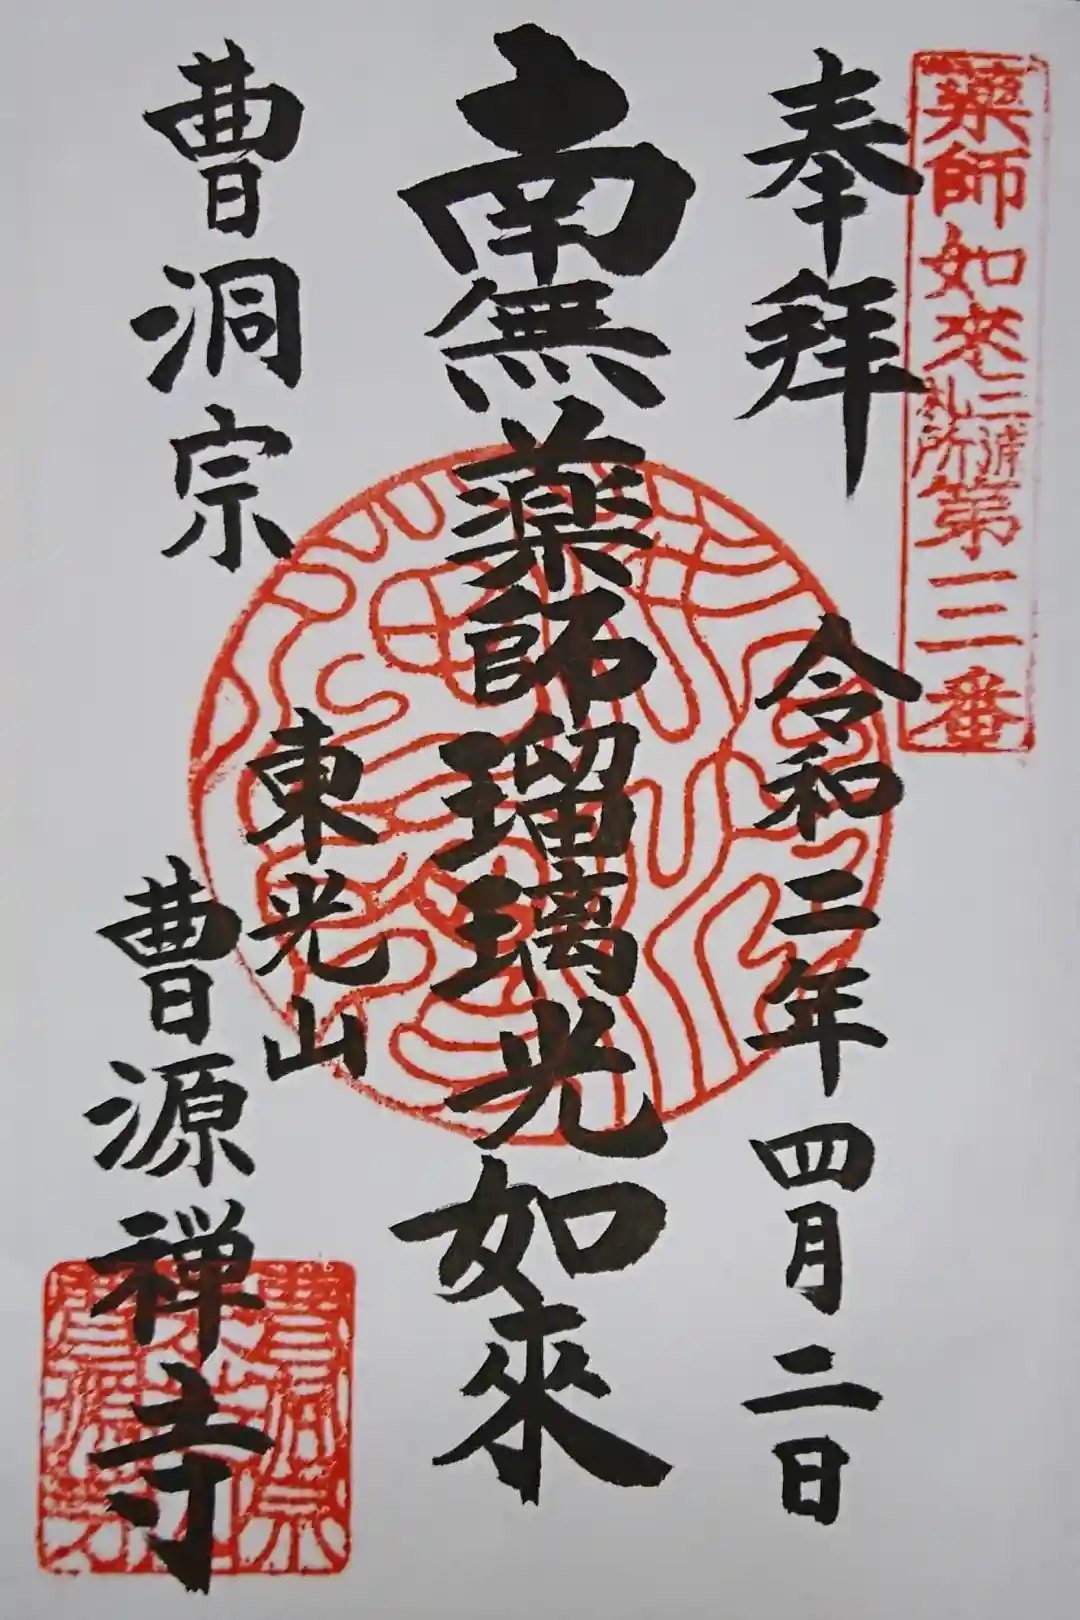 薬師如来
三遠
札所
第三番
奉拝
令和二年四月二日
南無薬師瑠璃光如來
曹洞宗
東光山
曹源禅寺